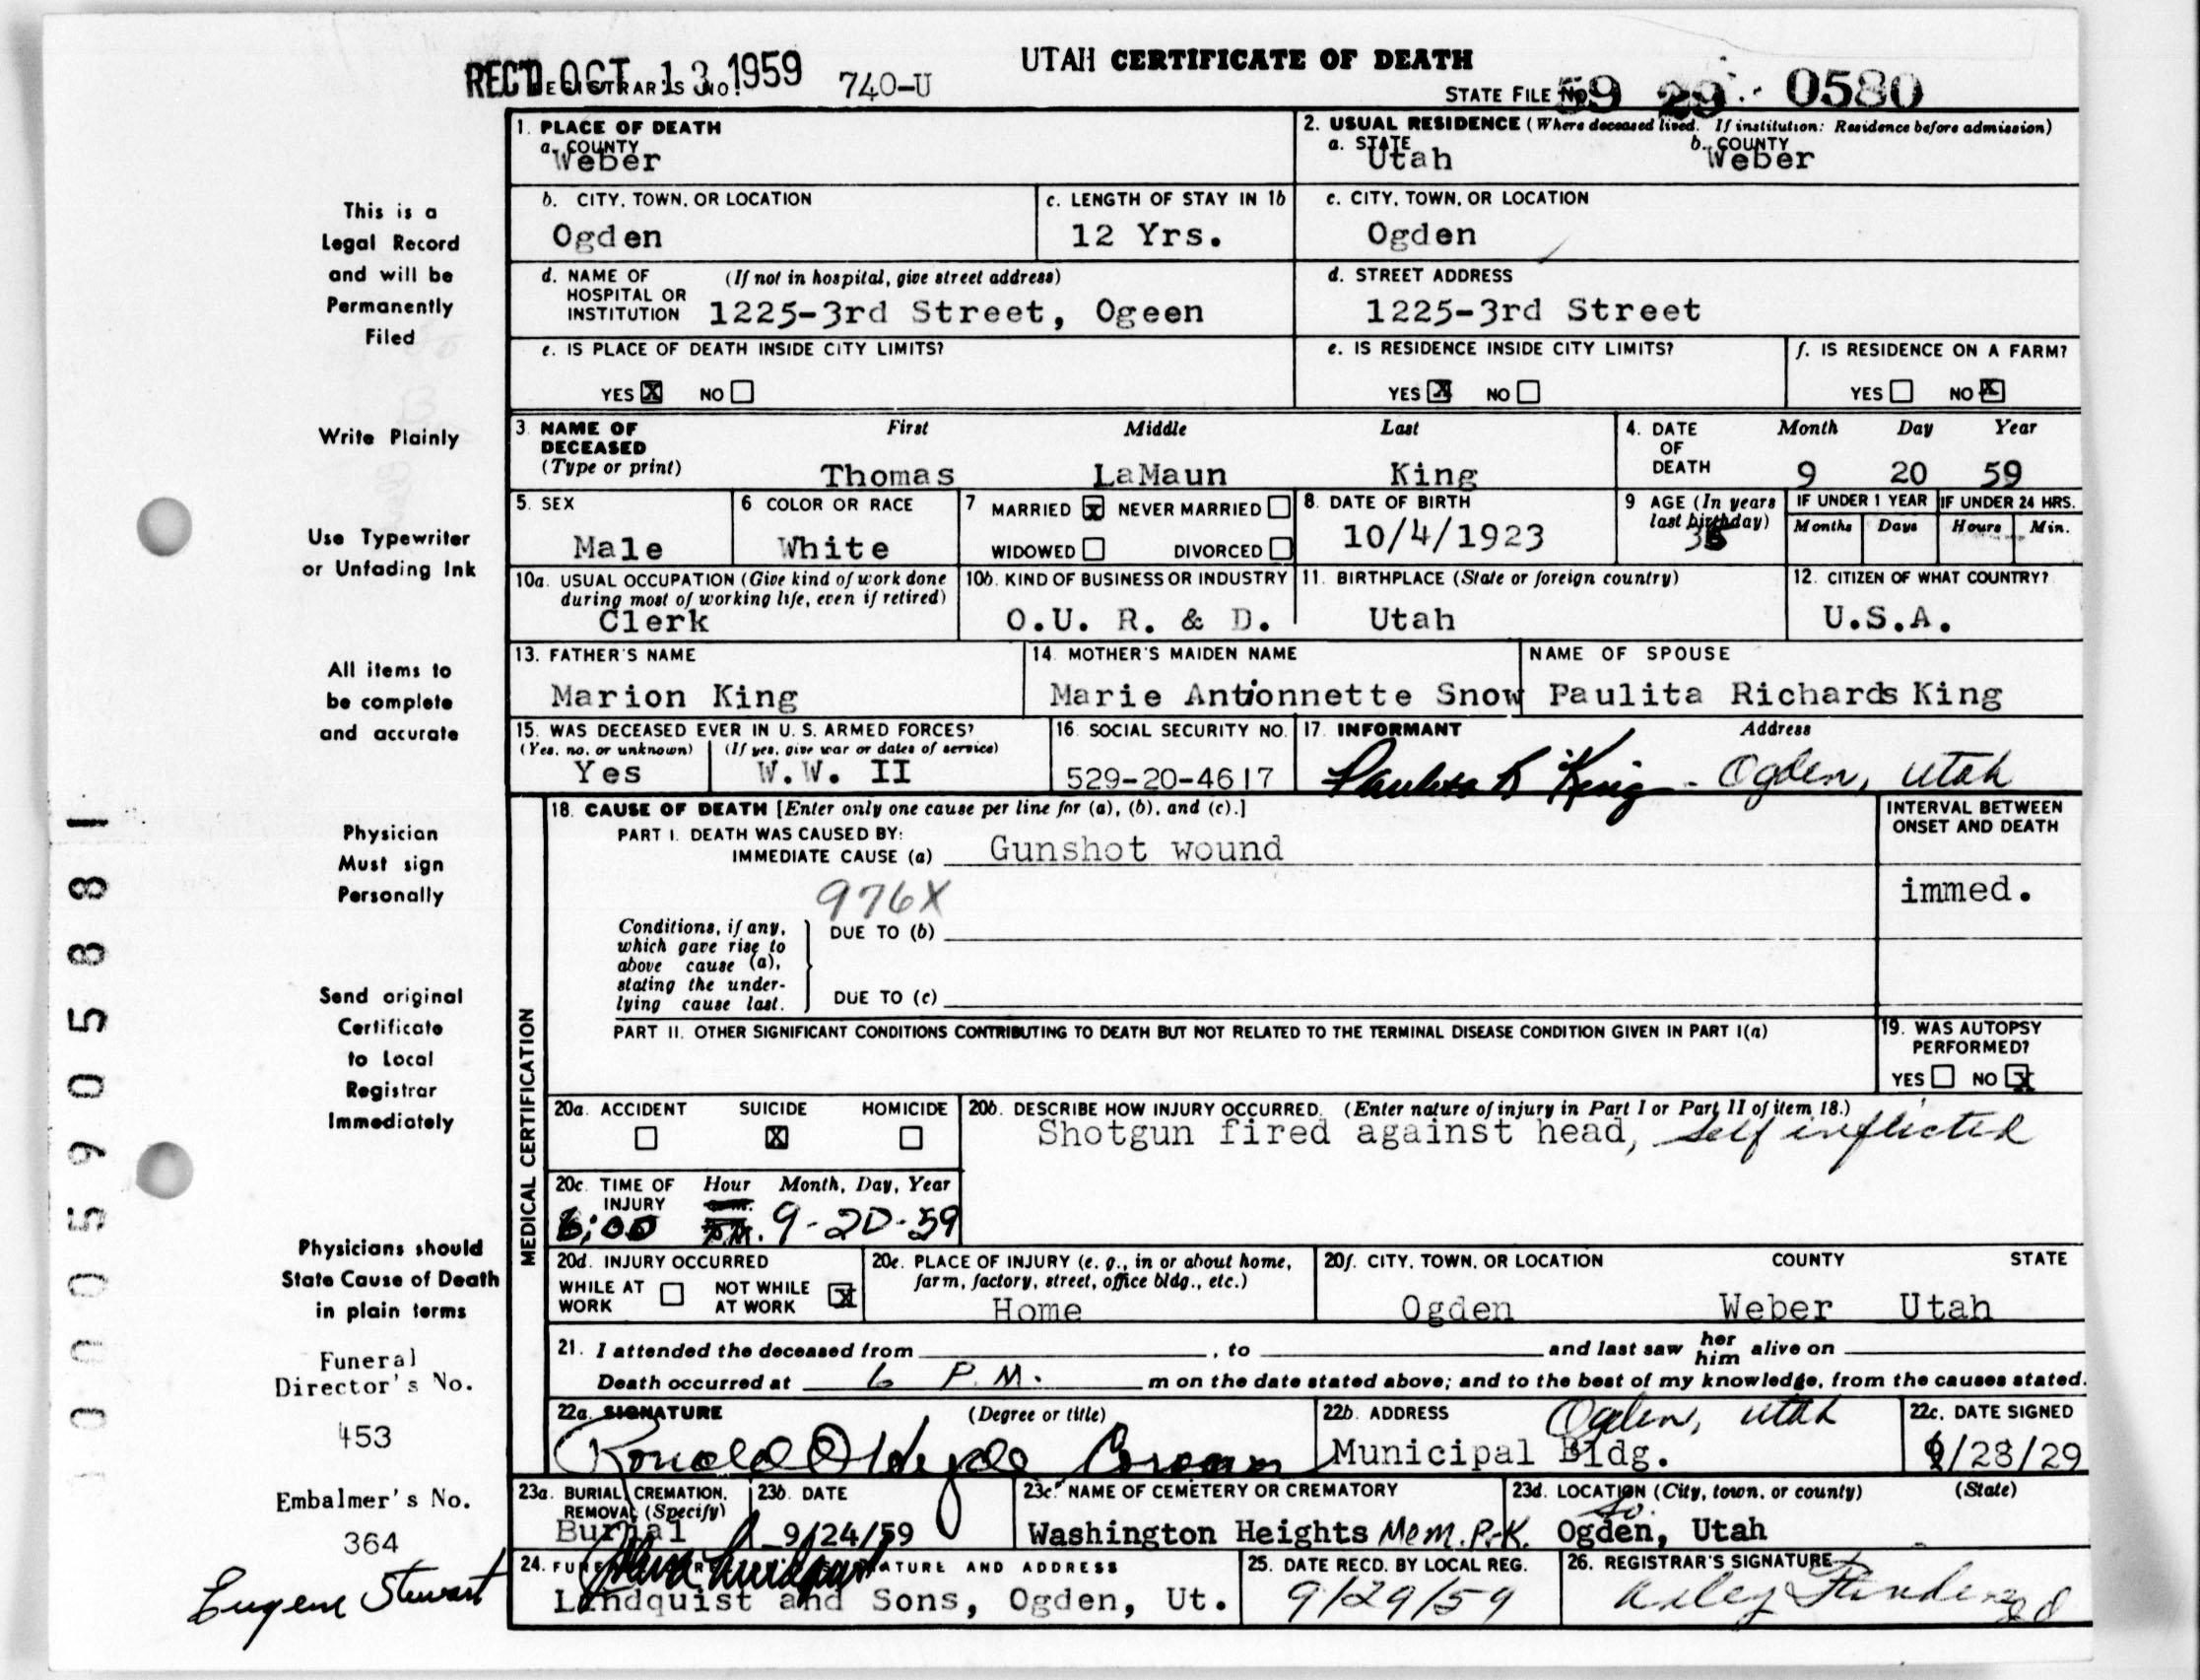 UTAH CERTIFICATE OF DEATH
REC'D OCT 13 1959 740-U
STATE FILE No. 59 29 0580
1. PLACE OF DEATH
a. COUNTY
Weber
2. USUAL RESIDENCE (Where deceased lived. If institution: Residence before admission)
a. STATE b. COUNTY
Utah Weber
b. CITY, TOWN, OR LOCATION
Ogden
c. LENGTH OF STAY IN 1b
12 Yrs.
c. CITY, TOWN, OR LOCATION
Ogden
d. NAME OF HOSPITAL OR INSTITUTION (If not in hospital, give street address)
1225-3rd Street, Ogeen
d. STREET ADDRESS
1225-3rd Street
e. IS PLACE OF DEATH INSIDE CITY LIMITS?
YES X NO
e. IS RESIDENCE INSIDE CITY LIMITS?
YES X NO
f. IS RESIDENCE ON A FARM?
YES NO X
3. NAME OF DECEASED (Type or print)
First Middle Last
Thomas LaMaun King
4. DATE OF DEATH
Month Day Year
9 20 59
5. SEX
Male
6 COLOR OR RACE
White
7 MARRIED X NEVER MARRIED
WIDOWED DIVORCED
8. DATE OF BIRTH
10/4/1923
9 AGE (In years last birthday)
35
IF UNDER 1 YEAR
Months Days
IF UNDER 24 HRS.
Hours Min.
10a. USUAL OCCUPATION (Give kind of work done during most of working life, even if retired)
Clerk
10b. KIND OF BUSINESS OR INDUSTRY
O.U. R. & D.
11. BIRTHPLACE (State or foreign country)
Utah
12. CITIZEN OF WHAT COUNTRY?
U.S.A.
13. FATHER'S NAME
Marion King
14. MOTHER'S MAIDEN NAME
Marie Antionnette Snow
NAME OF SPOUSE
Paulita Richards King
15. WAS DECEASED EVER IN U. S. ARMED FORCES?
(Yes, no, or unknown) (If yes, give war or dates of service)
Yes W.W. II
16. SOCIAL SECURITY NO.
529-20-4617
17. INFORMANT Address
Paulita R King - Ogden, Utah
MEDICAL CERTIFICATION
18. CAUSE OF DEATH [Enter only one cause per line for (a), (b), and (c).]
PART I. DEATH WAS CAUSED BY:
IMMEDIATE CAUSE (a) Gunshot wound
976X
INTERVAL BETWEEN ONSET AND DEATH
immed.
Conditions, if any, which gave rise to above cause (a), stating the underlying cause last.
DUE TO (b)
DUE TO (c)
PART II. OTHER SIGNIFICANT CONDITIONS CONTRIBUTING TO DEATH BUT NOT RELATED TO THE TERMINAL DISEASE CONDITION GIVEN IN PART I(a)
19. WAS AUTOPSY PERFORMED?
YES NO X
20a. ACCIDENT SUICIDE HOMICIDE
X
20b. DESCRIBE HOW INJURY OCCURRED. (Enter nature of injury in Part I or Part II of item 18.)
Shotgun fired against head, self inflicted
20c. TIME OF INJURY Hour Month, Day, Year
6:00 P.M. 9-20-59
20d. INJURY OCCURRED
WHILE AT WORK NOT WHILE AT WORK X
20e. PLACE OF INJURY (e. g., in or about home, farm, factory, street, office bldg., etc.)
Home
20f. CITY, TOWN, OR LOCATION COUNTY STATE
Ogden Weber Utah
21. I attended the deceased from , to and last saw her him alive on
Death occurred at 6 P.M. m on the date stated above; and to the best of my knowledge, from the causes stated.
22a. SIGNATURE (Degree or title)
Ronald O Hyde Coroner
22b. ADDRESS
Ogden, Utah
Municipal Bldg.
22c. DATE SIGNED
9/28/29
23a. BURIAL, CREMATION, REMOVAL (Specify)
Burial
23b. DATE
9/24/59
23c. NAME OF CEMETERY OR CREMATORY
Washington Heights Mem. P-K.
23d. LOCATION (City, town, or county) (State)
So.
Ogden, Utah
24. SIGNATURE AND ADDRESS
Lindquist and Sons, Ogden, Ut.
25. DATE RECD. BY LOCAL REG.
9/29/59
26. REGISTRAR'S SIGNATURE
This is a
Legal Record
and will be
Permanently
Filed
Write Plainly
Use Typewriter
or Unfading Ink
All items to
be complete
and accurate
Physician
Must sign
Personally
Send original
Certificate
to Local
Registrar
Immediately
Physicians should
State Cause of Death
in plain terms
Funeral
Director's No.
453
Embalmer's No.
364
Eugene Stewart
0005905881